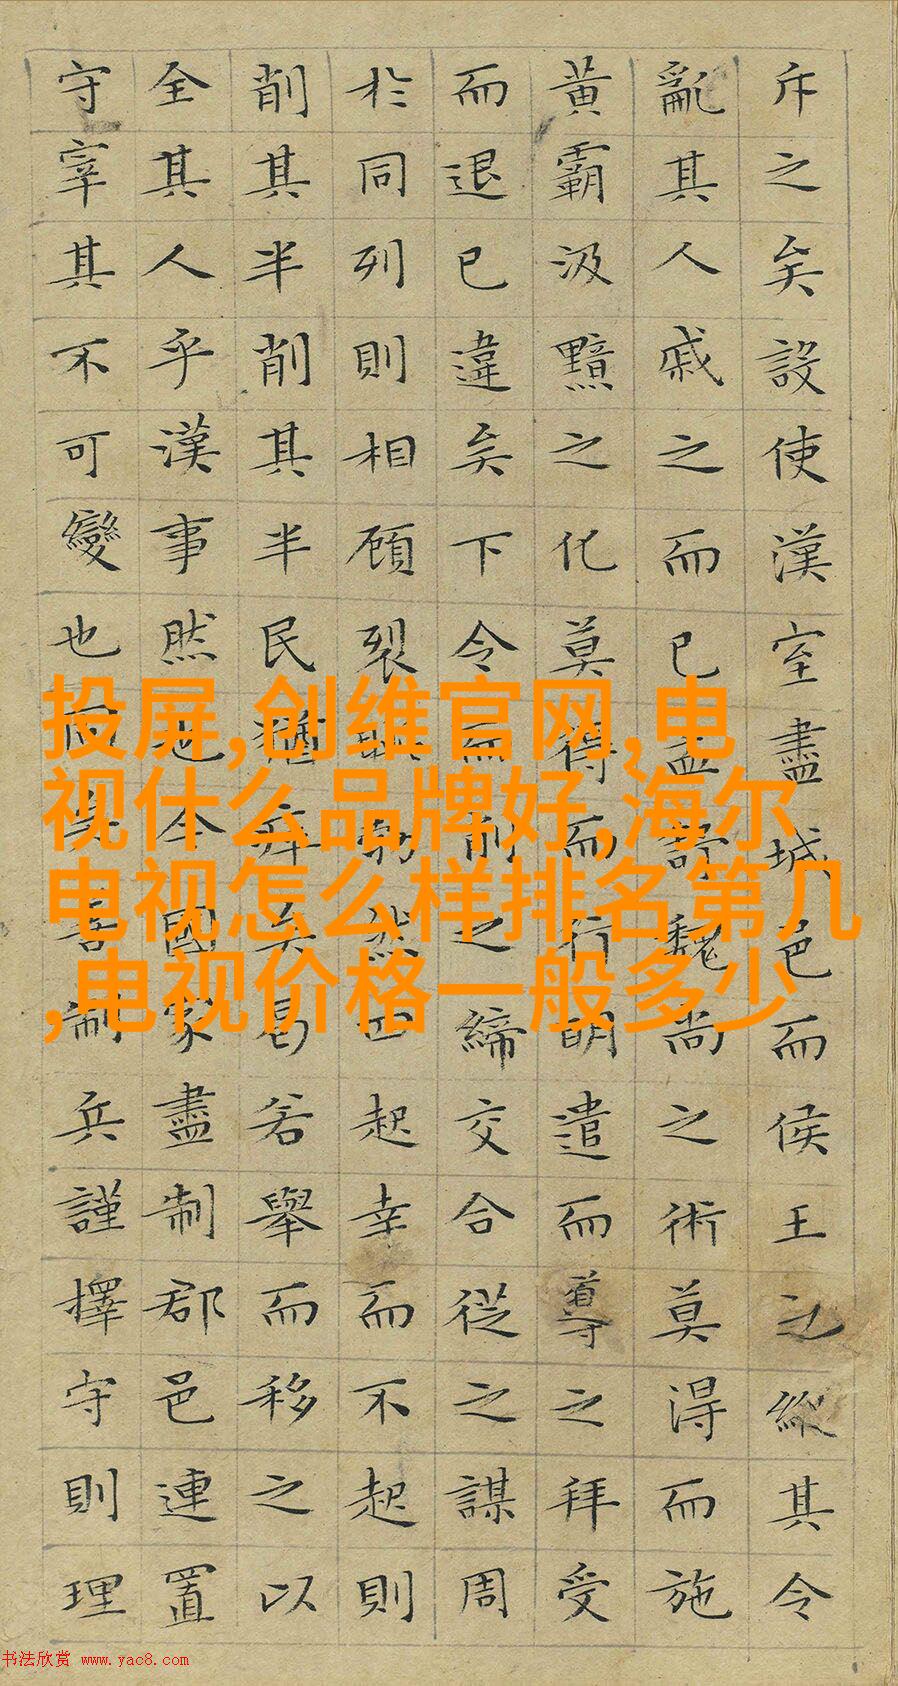 斥之矣設使漢室盡城邑而侯王之縱其令
亂其人戚之而已孟舒魏尚之術莫得而施
黃霸汲黯之化莫得而行明遣而導之拜受
而退已違矣下令而削之締交合從之謀周
於同列則相顧裂眦勃然而起幸而不起則
削其半削其半民猶瘁矣曷若舉而移之以
全其人乎漢事然也今國家盡制郡邑連置
守宰其不可變也固矣善制兵謹擇守則理
投屏,创维官网,电
视什么品牌好,海尔
电视怎么样排名第几
,电视价格一般多少
书法欣赏 www.yac8.com